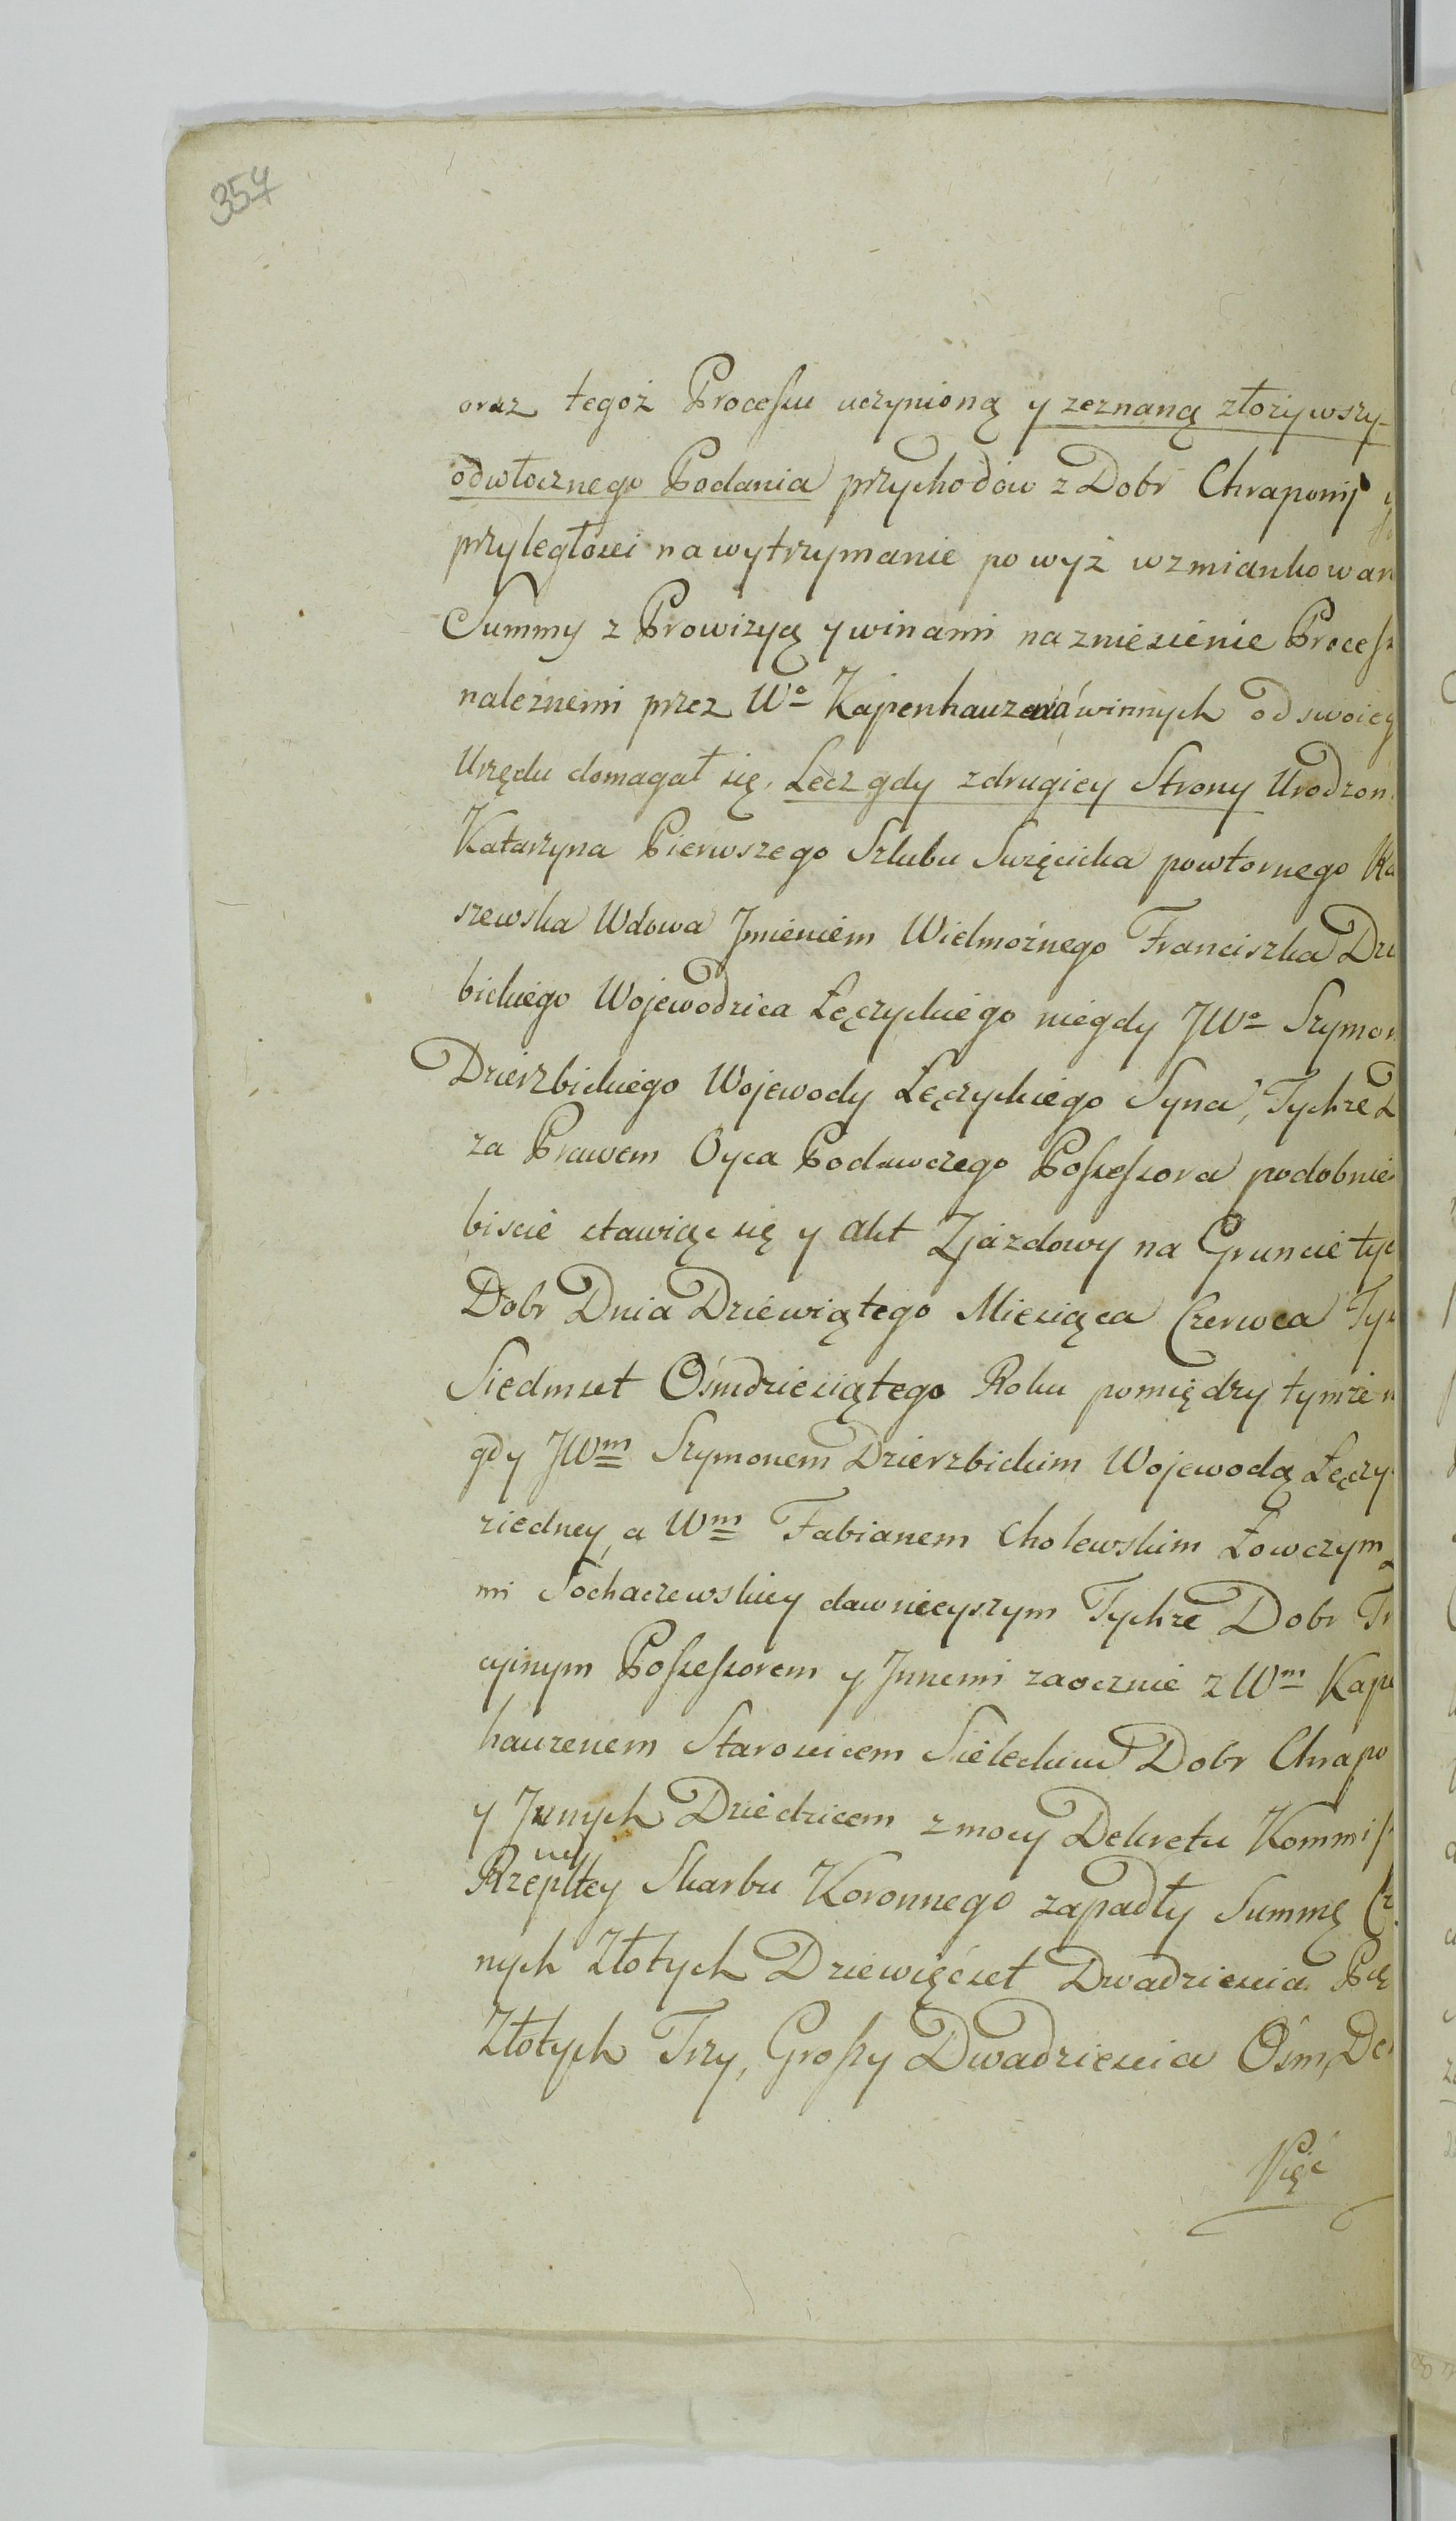 357
oraz tegoż Processu uczynioną y zeznaną złożywszy-
odwłocznego Podania przychodów z Dobr Chraponij
przyległości na wytrzymanie powyż wzmiankowan
Summy z Prowizyą y winami na zniesienie Process
należnemi przez Wo Kapenhauzena winnych od swoieg
Urzędu domagał się. Lecz gdy z drugiey Strony Urodzon
Katarzyna Pierwszego Szlubu Swięcicka powtornego Ka
szewska Wdowa Jmieniem Wielmożnego Franciszka Dzi
bickiego Wojewodzica Łęczyckiego niegdy JWo Szymon
Dzierzbickiego Wojewody Łęczyckiego Syna, Tychże
za Prawem Oyca Podawczego Possessora podobnie
biscie stawiąc się y Akt Zjazdowy na Gruncie tyc
Dobr Dnia Dziewiątego Miesiąca Czerwca Tys
Siedmset Ośmdziesiątego Roku pomiędzy tymże n
gdy JWm Szymonem Dzierzbickim Wojewodą Łęczy
ziedney, a Wm Fabianem Cholewskim Łowczym
mi Sochaczewskiey dawnieyszym Tychże Dobr Tr
cyinym Possessorem y Jnnemi zaocznie z Wm Kape
hauzenem Starościcem Sieleckim Dobr Chrapo
y Jnnych Dziedzicem z mocy Dekretu Kommis
Rzeplttey Skarbu Koronnego zapadły Summę Cz
nych Złotych Dziewięćset Dwadziescia Pię
Złotych Trzy, Groszy Dwadziescia Ośm, De
Pięć